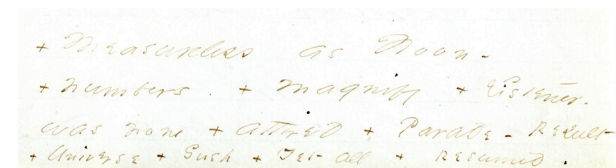 + Measureless as Noon -
+ numbers. + magnify + Listener.
was none + attired + Parade - Result
+ Universe + Gush + Yet - all + Resumed